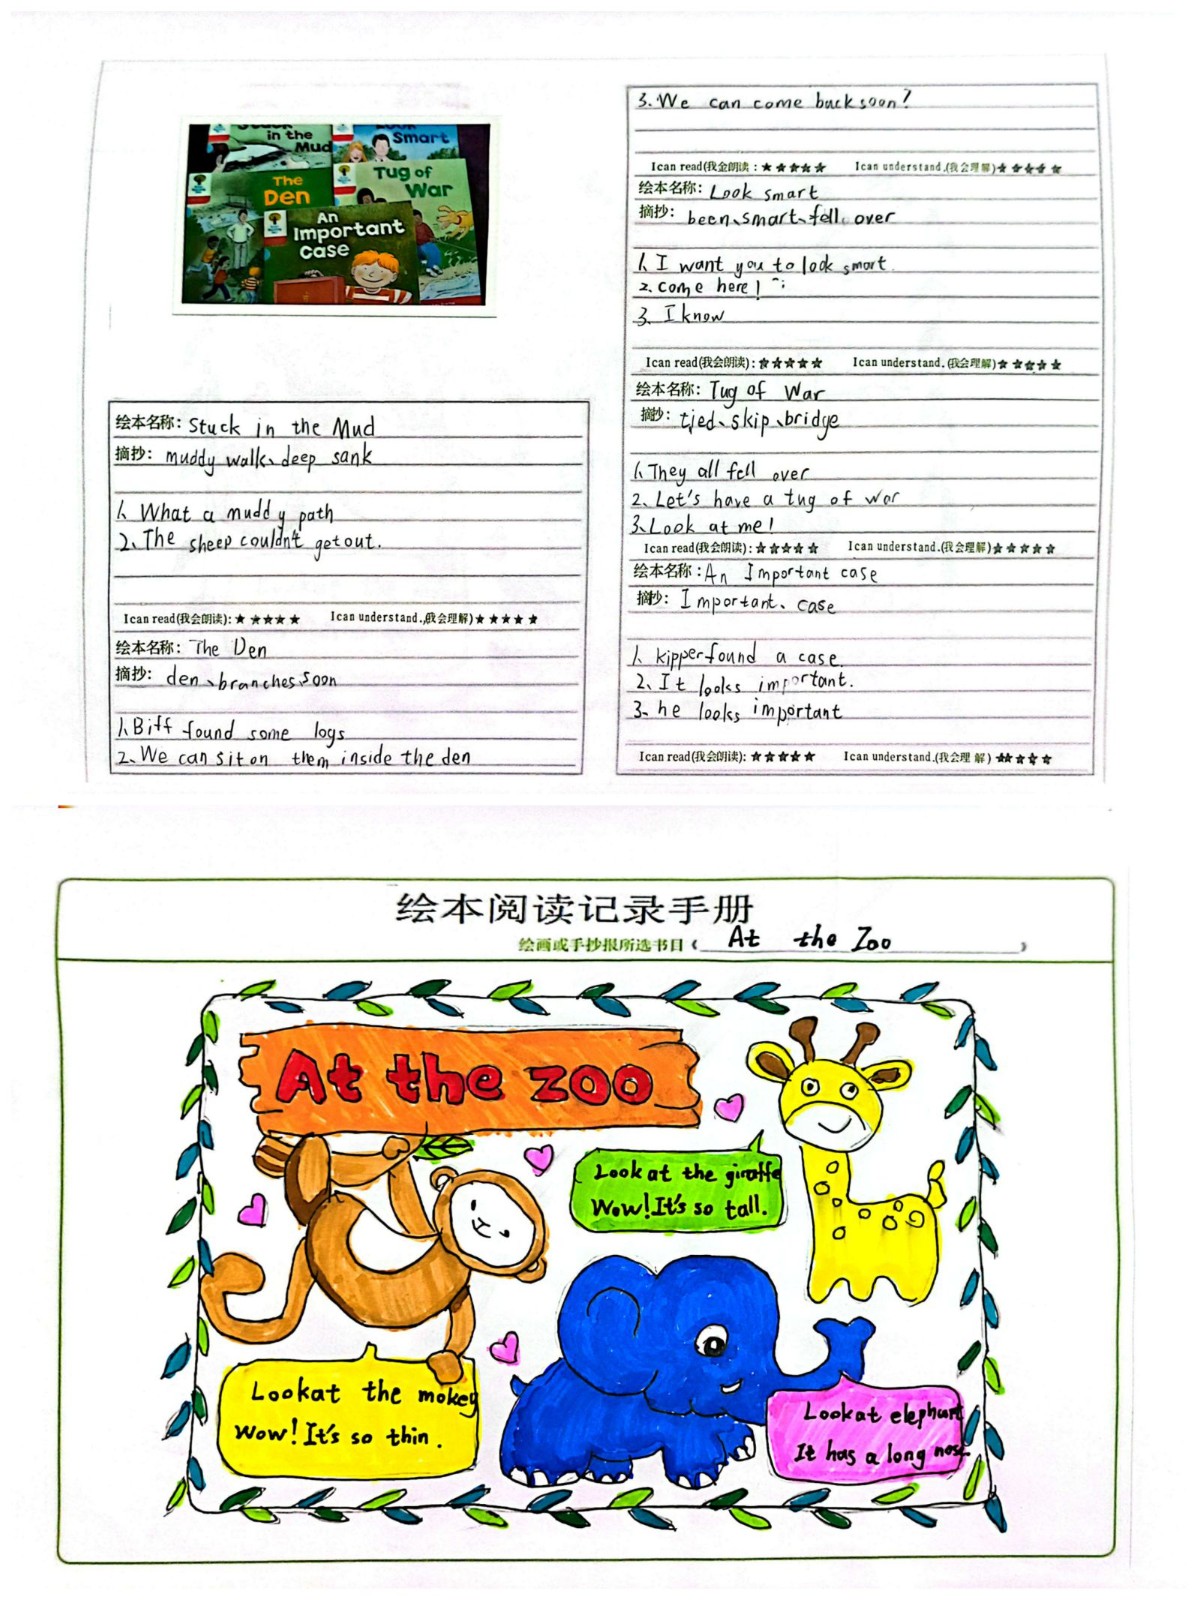 Stuck
in the
Mud
Look
Smart
The
Den
Tug of
War
An
Important
Case
绘本名称: Stuck in the Mud
摘抄: muddy walk、deep sank
1、What a muddy path
2、The sheep couldn't get out.
I can read(我会朗读): ★★★★★ I can understand.(我会理解)★★★★★
绘本名称: The Den
摘抄: den、branches、soon
1、Biff found some logs
2、We can sit on them inside the den
3、We can come back soon?
I can read(我会朗读: ★★★★★ I can understand.(我会理解)★★★★★
绘本名称: Look smart
摘抄: been、smart、fell over
1、I want you to look smart.
2. come here!
3、I know
I can read(我会朗读): ★★★★★ I can understand.(我会理解)★★★★★
绘本名称: Tug of War
摘抄: tied、skip、bridge
1、They all fell over
2、Let's have a tug of war
3、Look at me!
I can read(我会朗读): ★★★★★ I can understand.(我会理解)★★★★★
绘本名称: An Important case
摘抄: Important、case
1、kipper found a case.
2、It looks important.
3、he looks important
I can read(我会朗读): ★★★★★ I can understand.(我会理解)★★★★★
绘本阅读记录手册
绘画或手抄报所选书目《 At the Zoo 》
At the zoo
Look at the giraffe
Wow! It's so tall.
Look at the mokey
Wow! It's so thin.
Look at elephant
It has a long nose